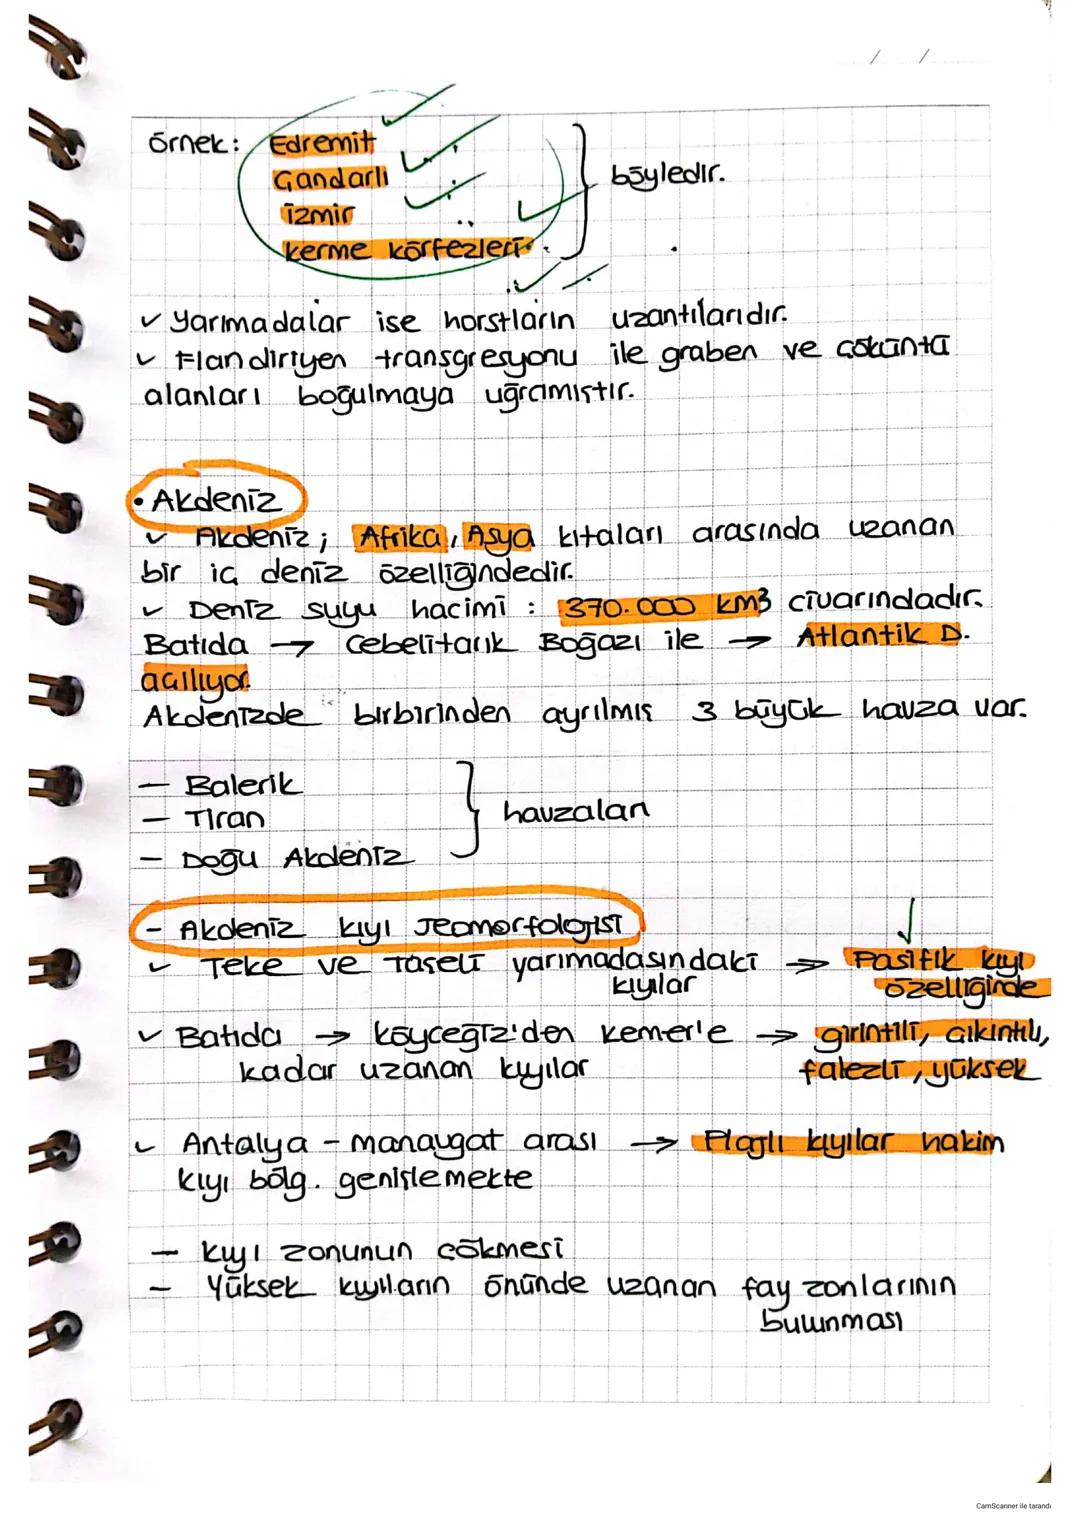 / /
örnek: Edremit
Çandarlı
böyledir.
İzmir
Kerme körfezleri
✓ Yarımadalar ise horstların uzantılarıdır.
✓ Flandiriyen transgresyonu ile graben ve çöküntü
alanları boğulmaya uğramıştır.
• Akdeniz
✓ Akdeniz; Afrika, Asya kıtaları arasında uzanan
bir iç deniz özelliğindedir.
✓ Deniz suyu hacimi : 370.000 km³ civarındadır.
Batıda → Cebelitarık Boğazı ile → Atlantik D.
açılıyor.
Akdenizde birbirinden ayrılmış 3 büyük havza var.
— Balerik
— Tiran
havzaları
— Doğu Akdeniz
- Akdeniz kıyı Jeomorfolojisi
✓ Teke ve Taşeli yarımadasındaki → Pasifik kıyı
kıyılar özelliğinde
✓ Batıda → Köyceğiz'den Kemer'e → girintili, çıkıntılı,
kadar uzanan kıyılar falezli, yüksek
✓ Antalya - manavgat arası → Plajlı kıyılar hakim
kıyı bölg. genişlemekte
— kıyı zonunun çökmesi
— Yüksek kıyıların önünde uzanan fay zonlarının
bulunması
CamScanner ile tarandı